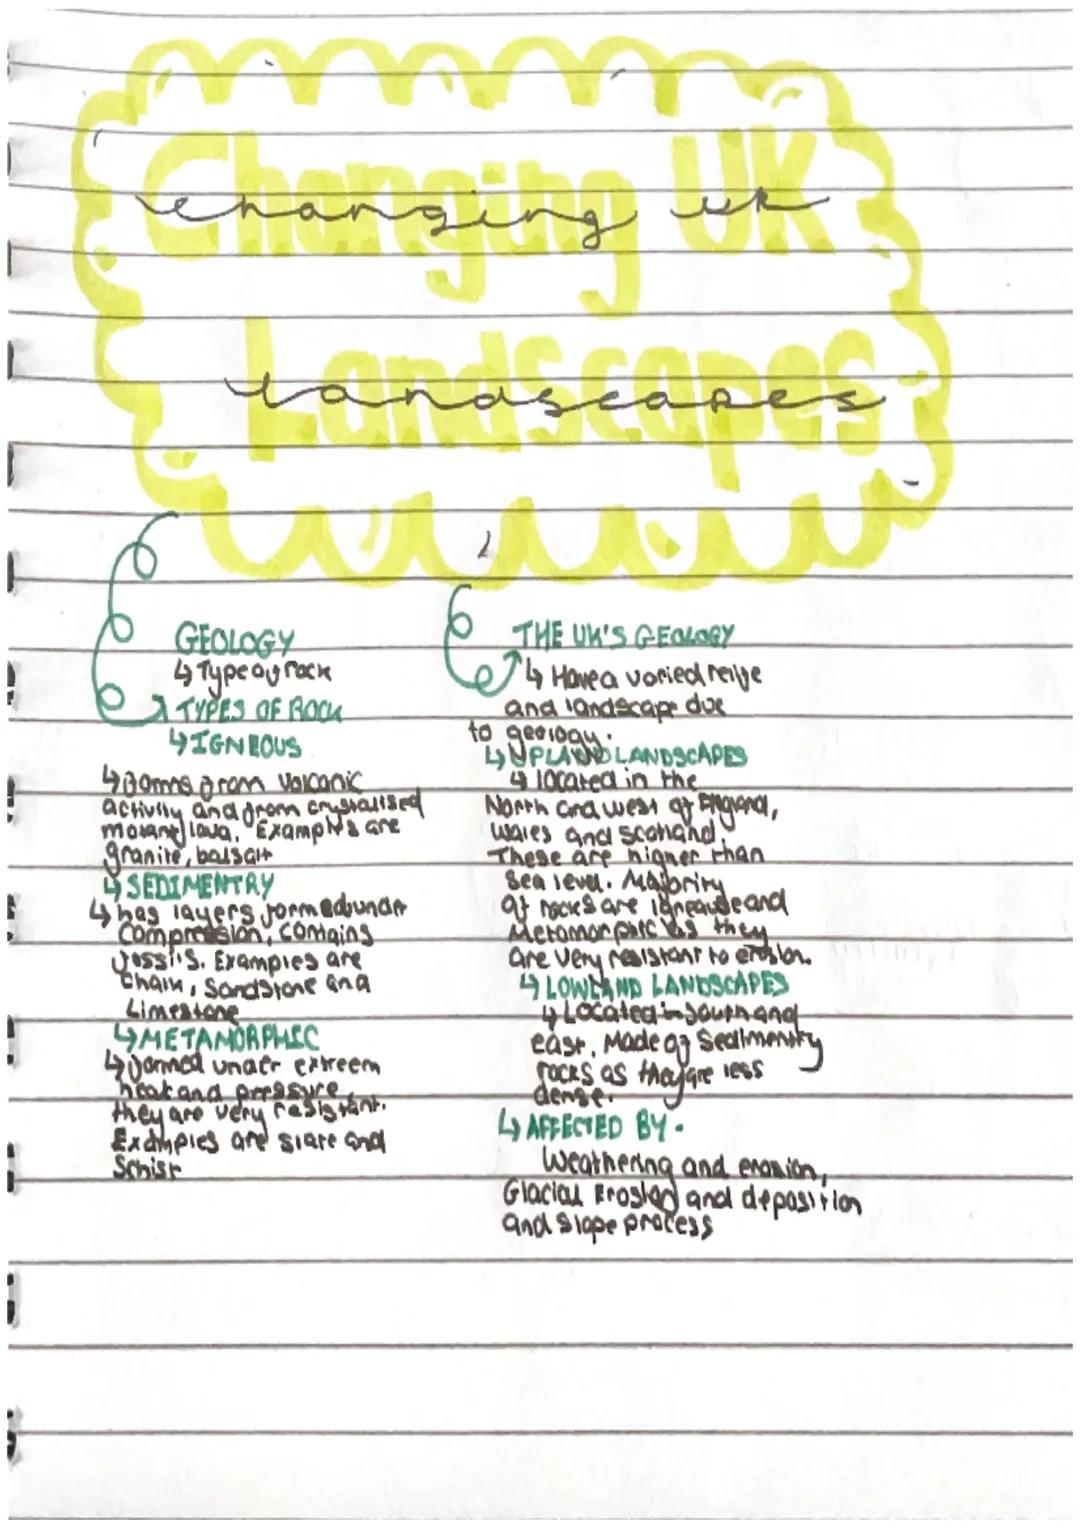 Changing UK
changing uk
Landscapes
landscapes
GEOLOGY
↳ Type of rock
TYPES OF ROCK
↳ IGNEOUS
↳ Forms from volcanic
activity and from crystalised
lava. Examples are
granite, balsalt
↳ SEDIMENTRY
↳ has layers formed under
compression, contains
fossils. Examples are
Chalk, Sandstone and
Limestone
↳ METAMORPHIC
↳ formed under extreem
heat and pressure,
they are very resistant.
Examples are slate and
Schist
THE UK'S GEOLOGY
↳ Have a varied relife
and landscape due
to geology.
↳ UPLAND LANDSCAPES
↳ located in the
North and west of England,
Wales and Scotland.
These are higher than
Sea level. Majority
of rocks are and
Metamorphic as they
are very resistant to erosion.
↳ LOWLAND LANDSCAPES
↳ Located in South and
east. Made of Sedimentry
rocks as they are less
dense.
↳ AFFECTED BY -
Weathering and erosion,
Glacial Erosion and deposition
and slope process